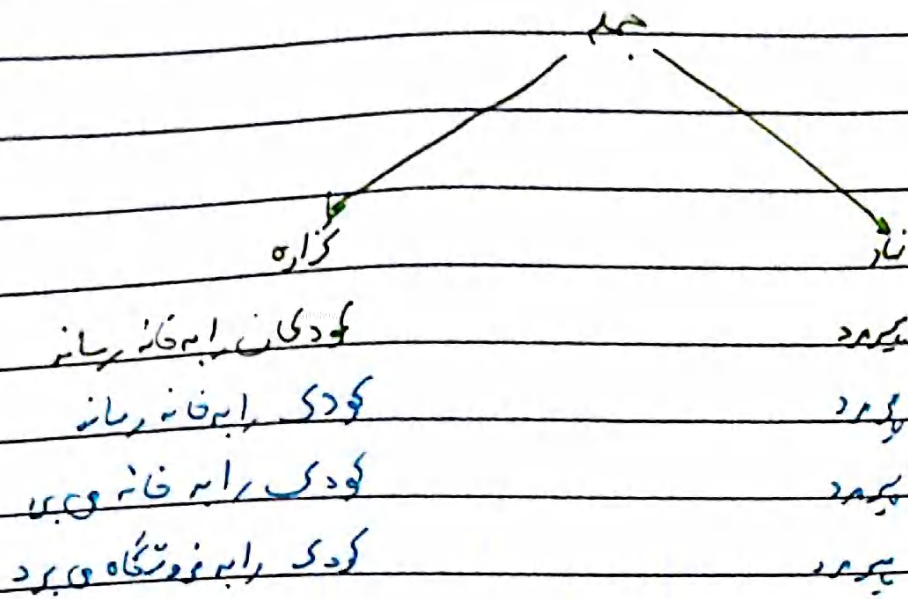 جمله
نهاد گزاره
پیرمرد کودکان را به خانه رساند
پیرمرد کودک را به خانه رساند
پیرمرد کودک را به خانه می برد
پیرمرد کودک را به فروشگاه می برد